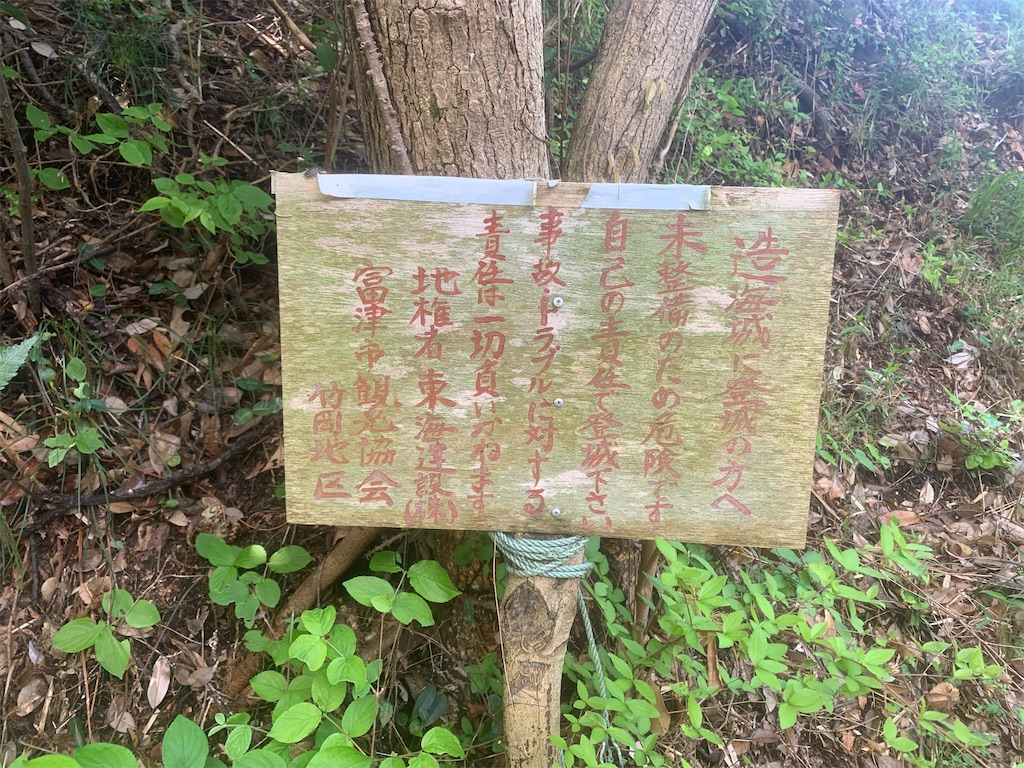 造海城に登城の方へ
未整備のため危険です
自己の責任で登城下さい
事故トラブルに対する
責任は一切負いかねます
地権者東海建設(株)
富津市観光協会
竹岡地区